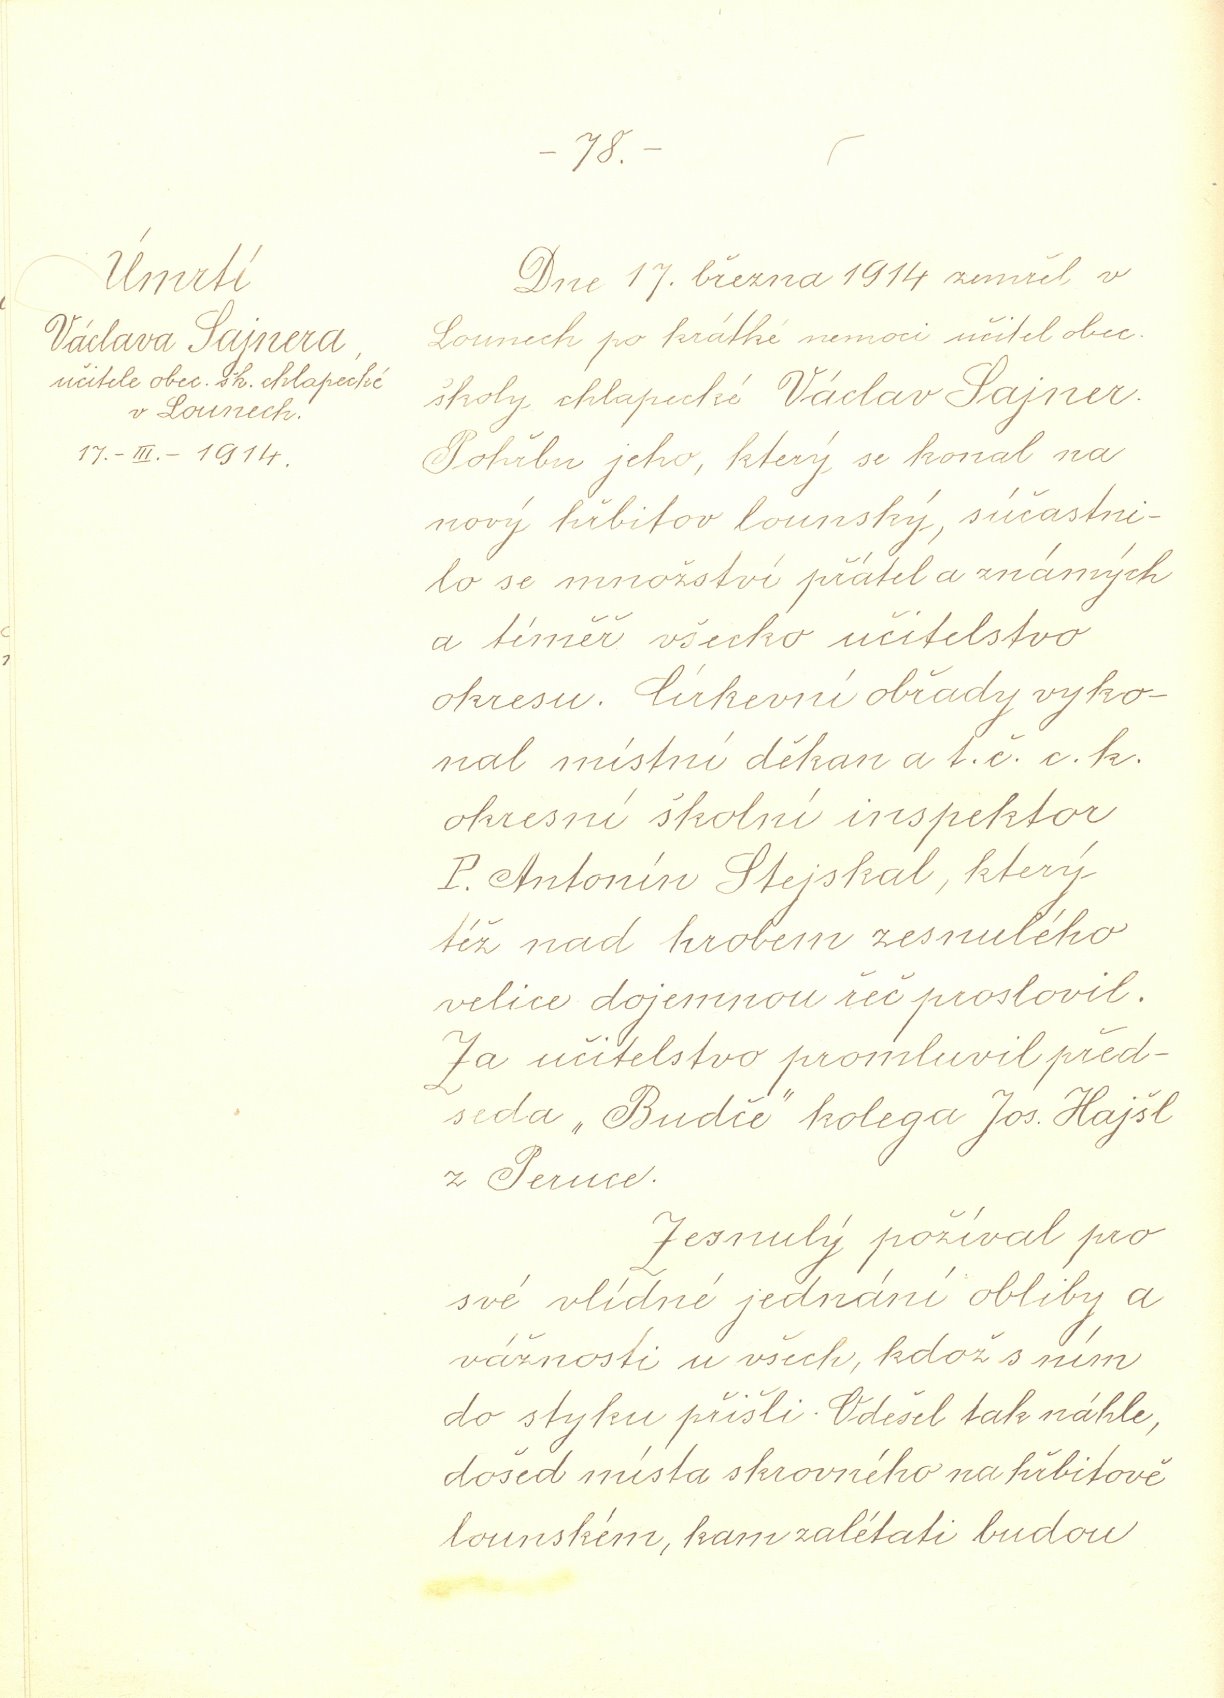 - 78. -
Úmrtí
Václava Sajnera,
učitele obec. šk. chlapecké
v Lounech.
17. - III. - 1914.
Dne 17. března 1914 zemřel v
Lounech po krátké nemoci učitel obec.
školy chlapecké Václav Sajner.
Pohřbu jeho, který se konal na
nový hřbitov lounský, súčastni-
lo se množství přátel a známých
a téměř všecko učitelstvo
okresu. Církevní obřady vyko-
nal místní děkan a t. č. c. k.
okresní školní inspektor
P. Antonín Stejskal, který
též nad hrobem zesnulého
velice dojemnou řeč proslovil.
Za učitelstvo promluvil před-
seda „Budče" kolega Jos. Hajšl
z Peruce.
Zesnulý požíval pro
své vlídné jednání obliby a
vážnosti u všech, kdož s ním
do styku přišli. Odešel tak náhle,
došed místa skrovného na hřbitově
lounském, kam zalétati budou